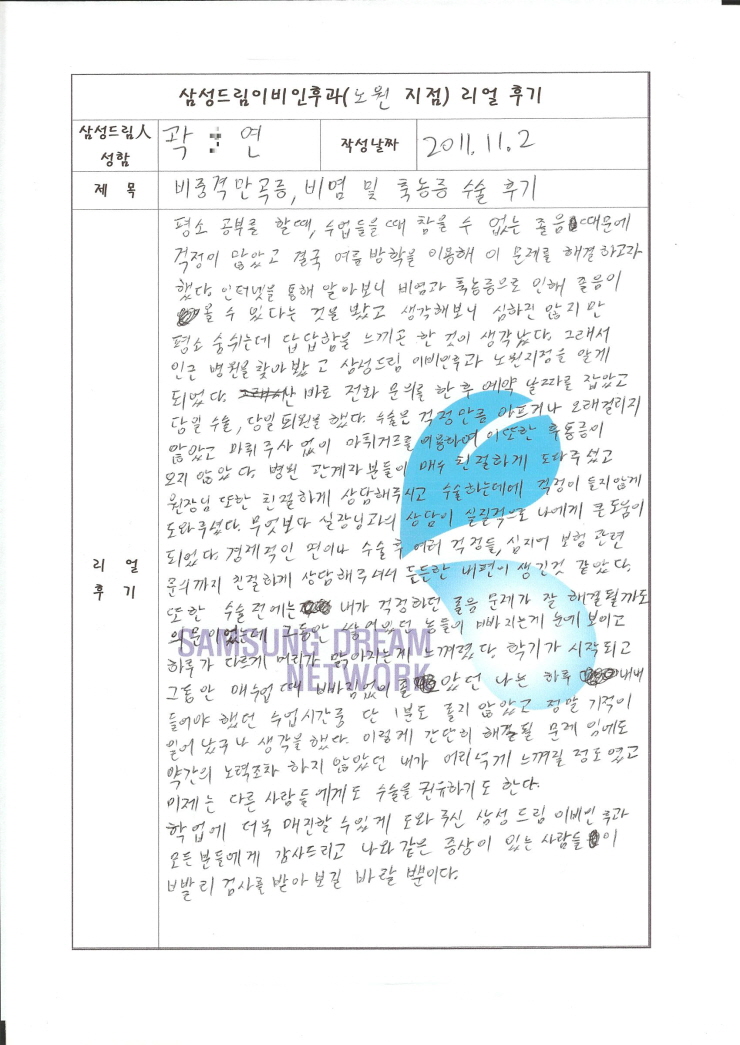 삼성드림이비인후과(노원 지점) 리얼 후기
삼성드림人 성함 곽 연 작성날짜 2011. 11. 2
제 목 비중격만곡증, 비염 및 축농증 수술 후기
리 얼 후 기
평소 공부를 할때, 수업들을때 참을 수 없는 졸음 때문에
걱정이 많았고 결국 여름방학을 이용해 이 문제를 해결하고자
했다. 인터넷을 통해 알아보니 비염과 축농증으로 인해 졸음이
올 수 있다는 것을 봤고 생각해보니 심하진 않지만
평소 숨쉬는데 답답함을 느끼곤 한 것이 생각났다. 그래서
인근 병원을 찾아봤고 삼성드림 이비인후과 노원지점을 알게
되었다. 바로 전화 문의를 한 후 예약 날짜를 잡았고
당일 수술, 당일 퇴원을 했다. 수술은 걱정만큼 아프거나 오래걸리지
않았고 마취주사 없이 마취거즈를 이용하여 이또한 후통증이
오지 않았다. 병원 관계자분들이 매우 친절하게 도와주셨고
원장님 또한 친절하게 상담해주시고 수술하는데에 걱정이 들지않게
도와주셨다. 무엇보다 실장님과의 상담이 실질적으로 나에게 큰 도움이
되었다. 경제적인 면이나 수술 후 여러 걱정들, 심지어 보험 관련
문의까지 친절하게 상담해주셔서 든든한 내편이 생긴것 같았다.
또한 수술전에는 내가 걱정하던 졸음 문제가 잘 해결될까도
의문이었는데 그동안 쌓여있던 농들이 빠지는게 눈에 보이고
하루가 다르게 머리가 맑아지는게 느껴졌다. 학기가 시작되고
그동안 매수업 때 빠짐없이 졸았던 나는 하루 내내
들어야 했던 수업시간중 단 1분도 졸지 않았고 정말 기적이
일어났구나 생각을 했다. 이렇게 간단히 해결될 문제임에도
약간의 노력조차 하지 않았던 내가 어리석게 느껴질 정도였고
이제는 다른 사람들에게도 수술을 권유하기도 한다.
학업에 더욱 매진할 수있게 도와주신 삼성드림 이비인후과
모든분들에게 감사드리고 나와 같은 증상이 있는 사람들이
빨리 검사를 받아 보길 바랄 뿐이다.
SAMSUNG DREAM
NETWORK